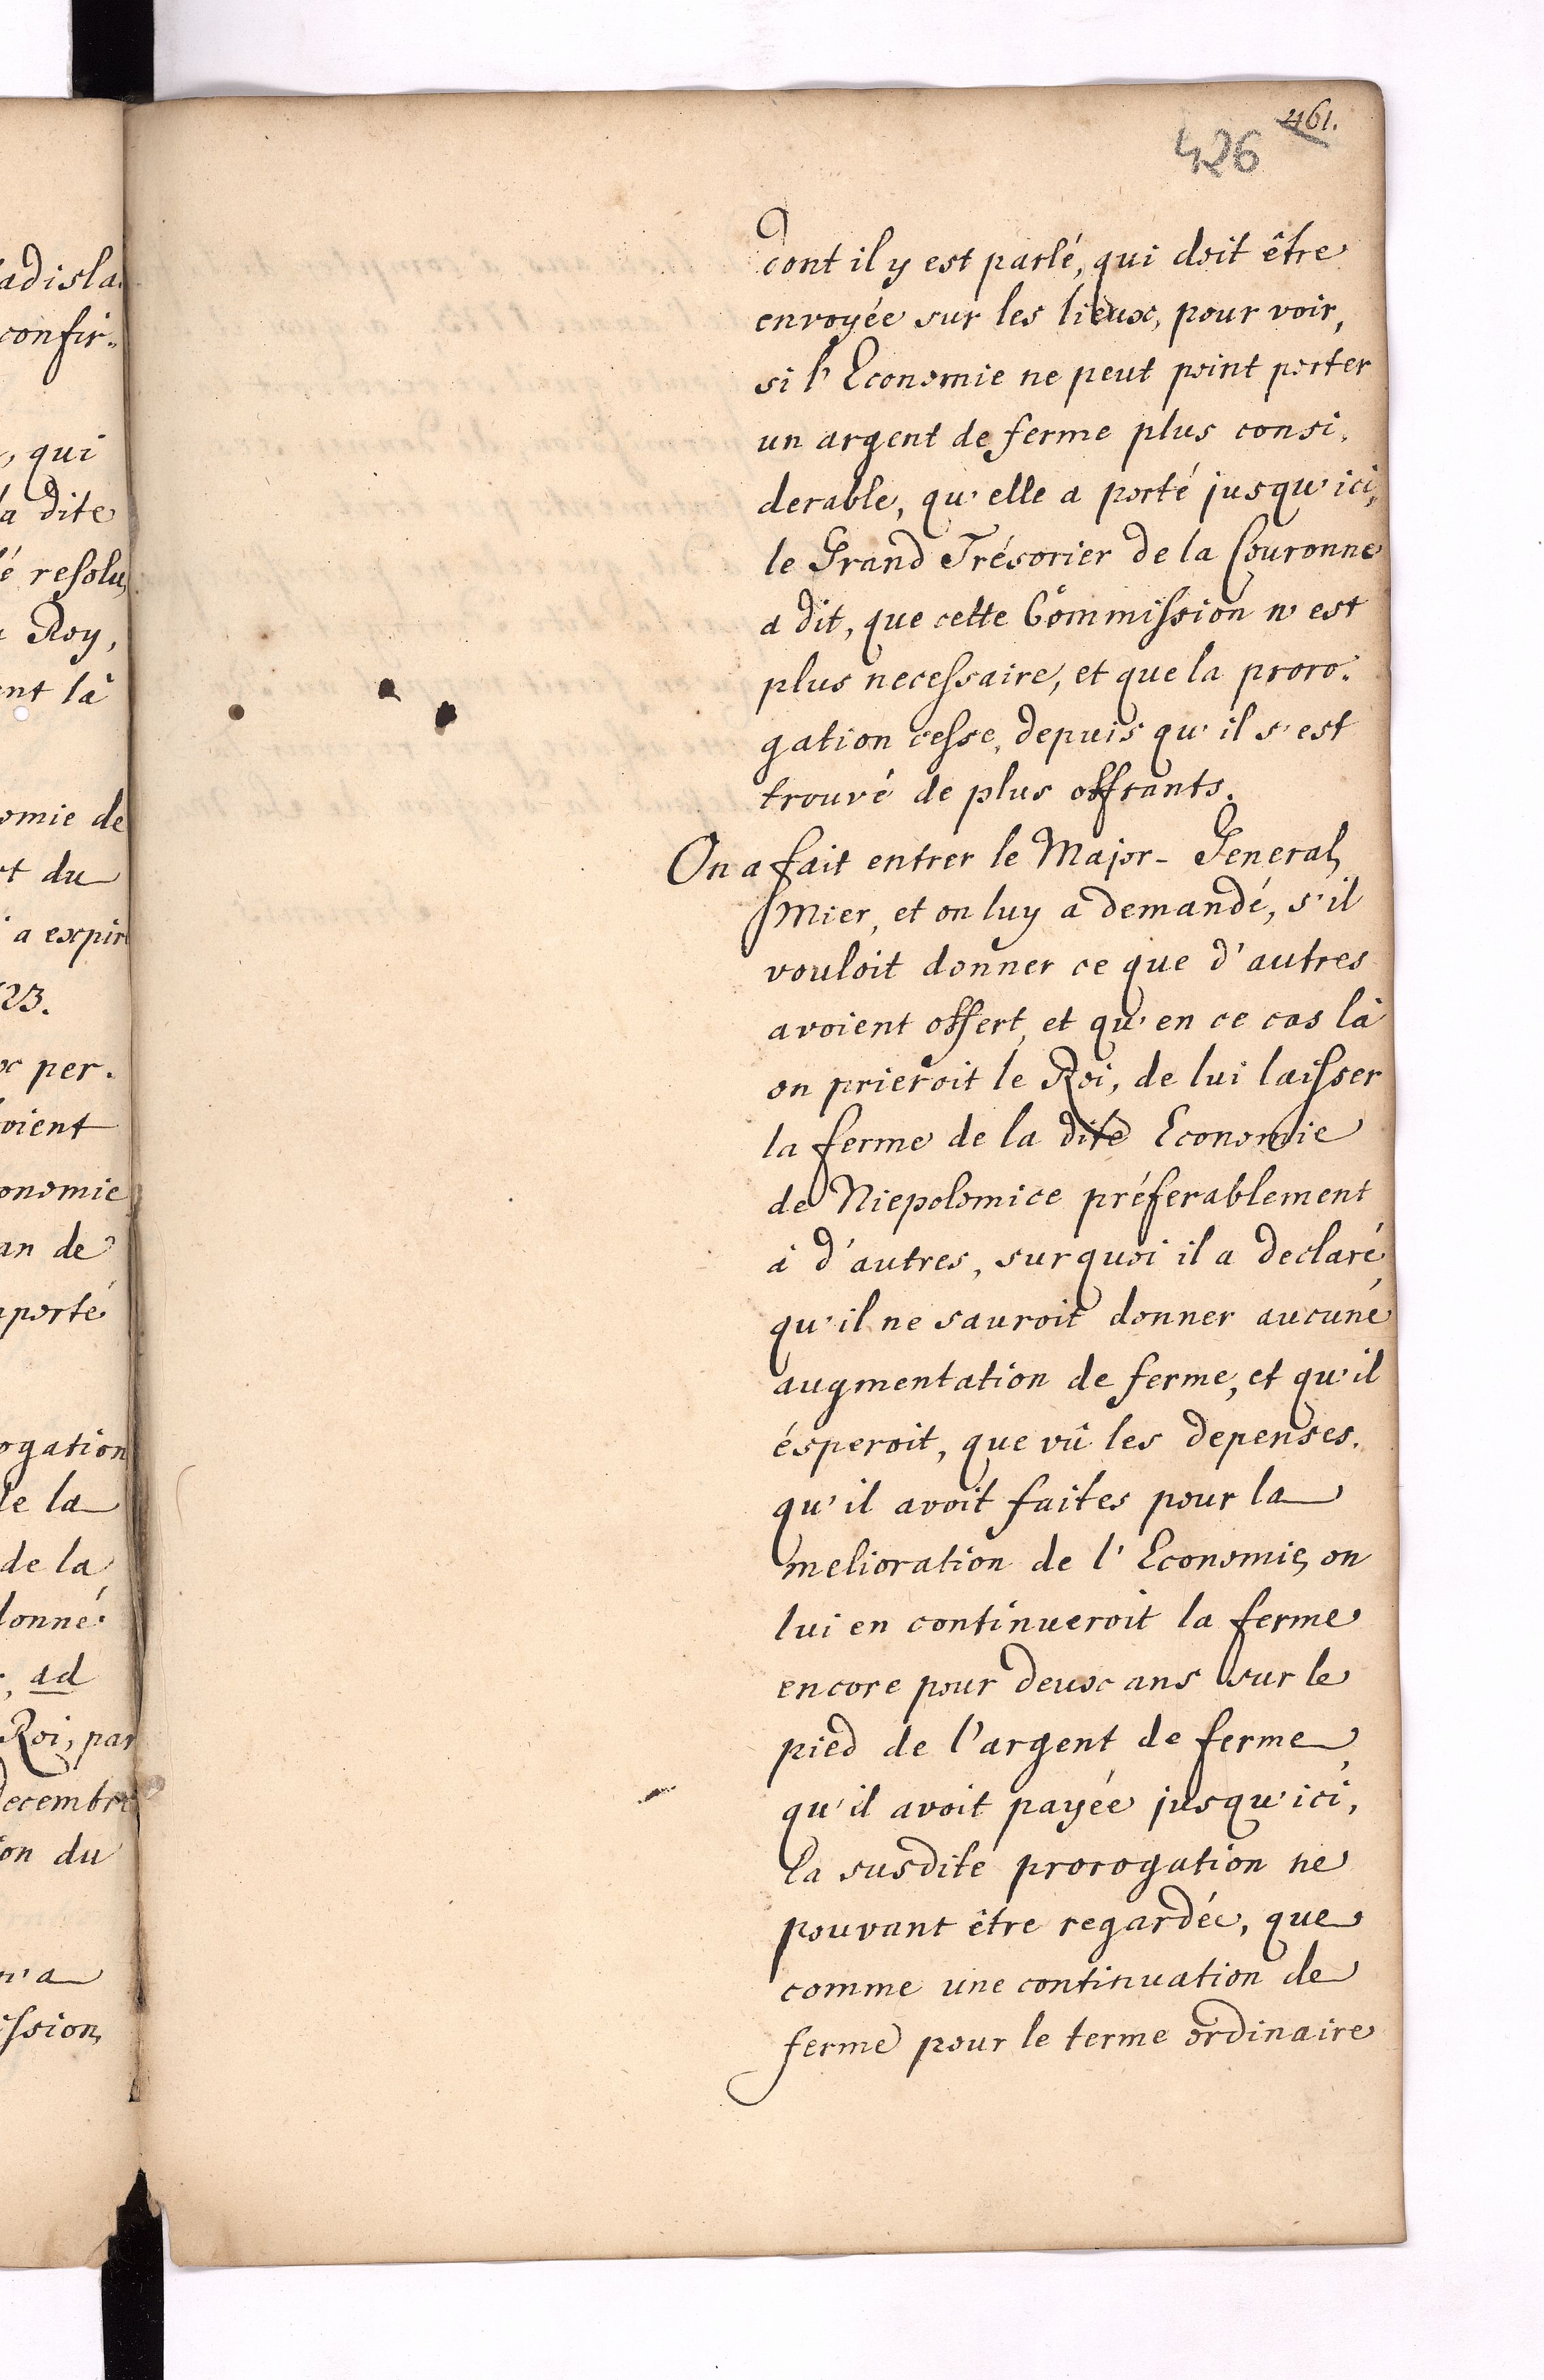 adisla
confir-
, qui
a dite
é resolu
Roy,
ent là
omie de
t du
a expir
23.
per.
oient
onomie
an de
porté
ogation
de la
de la
donné
, ad
Roi, par
decembre
on du
n'a
ission
461.
426
dont il y est parlé, qui doit être
envoyée sur les lieux, pour voir,
si l'Economie ne peut point porter
un argent de ferme plus consi-
derable, qu'elle a porté jusqu'ici,
le Grand Trésorier de la Couronne
a dit, que cette Commission n'est
plus necessaire, et que la proro-
gation cesse, depuis qu'il s'est
trouvé de plus offrants.
On a fait entrer le Major-General
Mier, et on luy a demandé, s'il
vouloit donner ce que d'autres
avoient offert, et qu'en ce cas là
on prieroit le Roi, de lui laisser
la ferme de la dite Economie
de Niepolomice préferablement
à d'autres, sur quoi il a declaré,
qu'il ne sauroit donner aucune
augmentation de ferme, et qu'il
ésperoit, que vû les depenses,
qu'il avoit faites pour la
melioration de l'Economie, on
lui en continueroit la ferme
encore pour deux ans sur le
pied de l'argent de ferme,
qu'il avoit payée jusqu'ici,
la susdite prorogation ne
pouvant être regardée, que
comme une continuation de
ferme pour le terme ordinaire